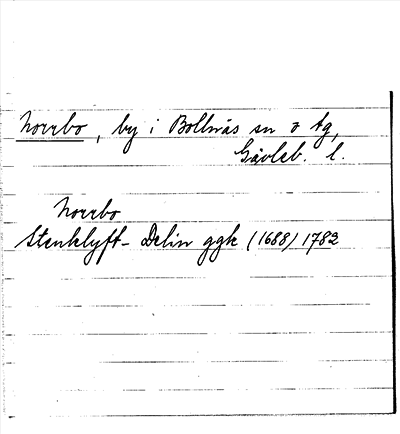 Norrbo, by i Bollnäs sn o tg,
Gävleb. l.
Norrbo
Stenklyft- Delin ggk (1688) 1782